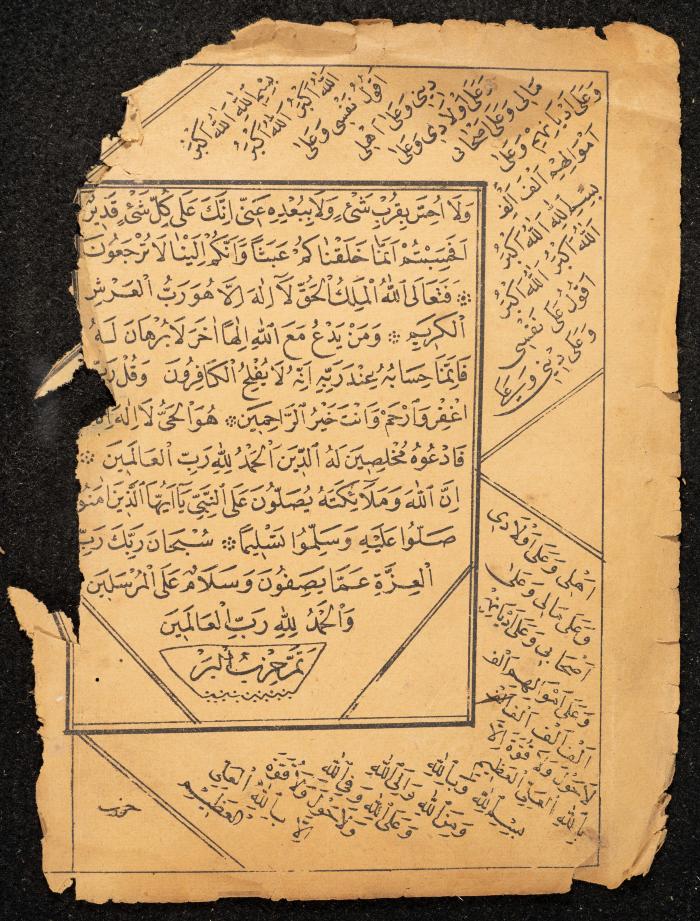 وَلَا احْتَرَّ بِقُرْبِ شَيْءٍ وَلَا بِبُعْدِهِ عَنِّي اِنَّكَ عَلَى كُلِّ شَيْءٍ قَدِيرٌ
اَفَحَسِبْتُمْ اَنَّمَا خَلَقْنَاكُمْ عَبَثًا وَاَنَّكُمْ اِلَيْنَا لَا تُرْجَعُونَ
فَتَعَالَى اللهُ الْمَلِكُ الْحَقُّ لَا اِلٰهَ اِلَّا هُوَ رَبُّ الْعَرْشِ
الْكَرِيمِ وَمَنْ يَدْعُ مَعَ اللهِ اِلٰهًا اٰخَرَ لَا بُرْهَانَ لَهُ
فَاِنَّمَا حِسَابُهُ عِنْدَ رَبِّهِ اِنَّهُ لَا يُفْلِحُ الْكَافِرُونَ وَقُلْ
اغْفِرْ وَارْحَمْ وَاَنْتَ خَيْرُ الرَّاحِمِينَ هُوَ الْحَيُّ لَا اِلٰهَ
فَادْعُوهُ مُخْلِصِينَ لَهُ الدِّينَ الْحَمْدُ لِلّٰهِ رَبِّ الْعَالَمِينَ
اِنَّ اللهَ وَمَلَائِكَتَهُ يُصَلُّونَ عَلَى النَّبِيِّ يَا اَيُّهَا الَّذِينَ اٰمَنُو
صَلُّوا عَلَيْهِ وَسَلِّمُوا تَسْلِيمًا سُبْحَانَ رَبِّكَ رَبِّ
الْعِزَّةِ عَمَّا يَصِفُونَ وَسَلَامٌ عَلَى الْمُرْسَلِينَ
وَالْحَمْدُ لِلّٰهِ رَبِّ الْعَالَمِينَ
تَمَّ حِزْبُ الْبَرِّ
بِسْمِ اللهِ اللهُ اَكْبَرُ
اللهُ اَكْبَرُ اللهُ اَكْبَرُ
اَقُولُ نَفْسِي وَعَلَى
دِينِي وَعَلَى اَهْلِي
وَعَلَى اَوْلَادِي وَعَلَى
مَالِي وَعَلَى اَصْحَابِي
وَعَلَى اَدْيَانِهِمْ وَعَلَى
اَمْوَالِهِمْ اَلْفَ اَلْفِ
بِسْمِ اللهِ اللهُ اَكْبَرُ
اللهُ اَكْبَرُ اللهُ اَكْبَرُ
اَقُولُ عَلَى نَفْسِي
وَعَلَى دِينِي وَعَلَى
اَهْلِي وَعَلَى اَوْلَادِي
وَعَلَى مَالِي وَعَلَى
اَصْحَابِي وَعَلَى اَدْيَانِهِمْ
وَعَلَى اَمْوَالِهِمْ اَلْفَ
اَلْفِ اَلْفَ اَلْفِ اَلْفِ
لَا حَوْلَ وَلَا قُوَّةَ اِلَّا
بِاللهِ الْعَلِيِّ الْعَظِيمِ
بِسْمِ اللهِ وَبِاللهِ
وَمِنَ اللهِ وَاِلَى اللهِ
وَعَلَى اللهِ وَفِي اللهِ
وَلَا حَوْلَ وَلَا قُوَّةَ
اِلَّا بِاللهِ الْعَلِي
الْعَظِيمِ